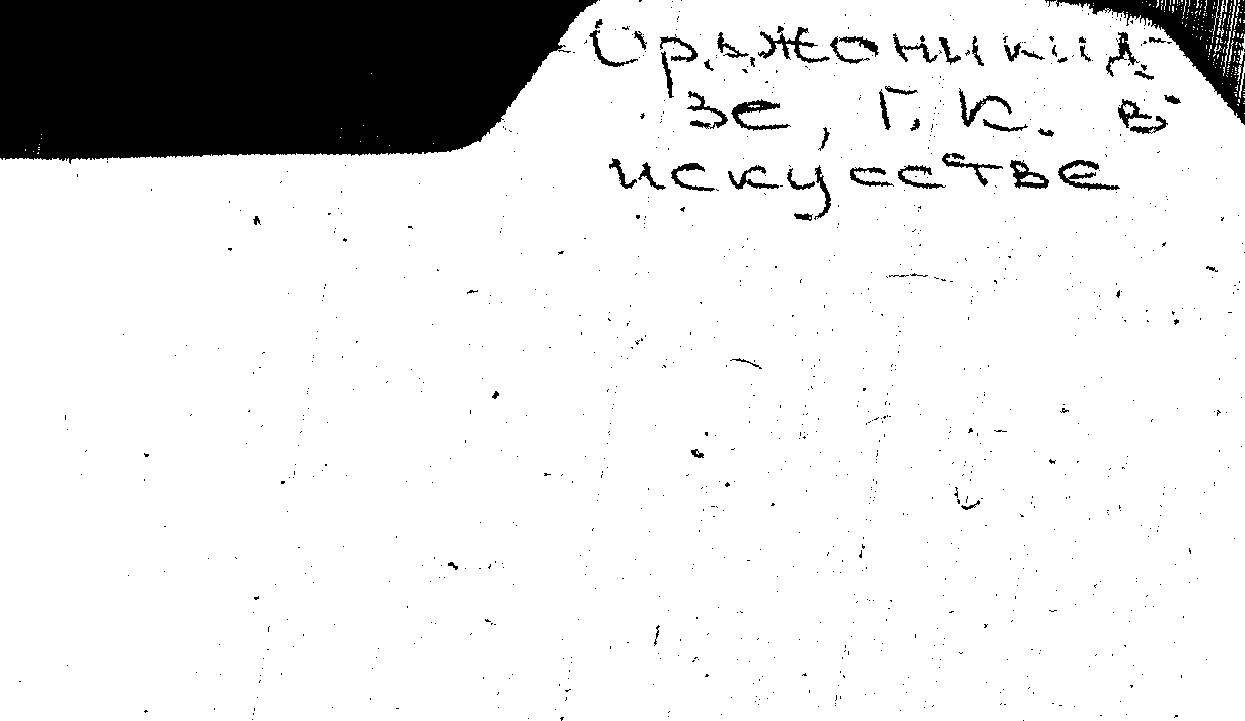 Орджоникид-
зе, Г. К. в
искусстве